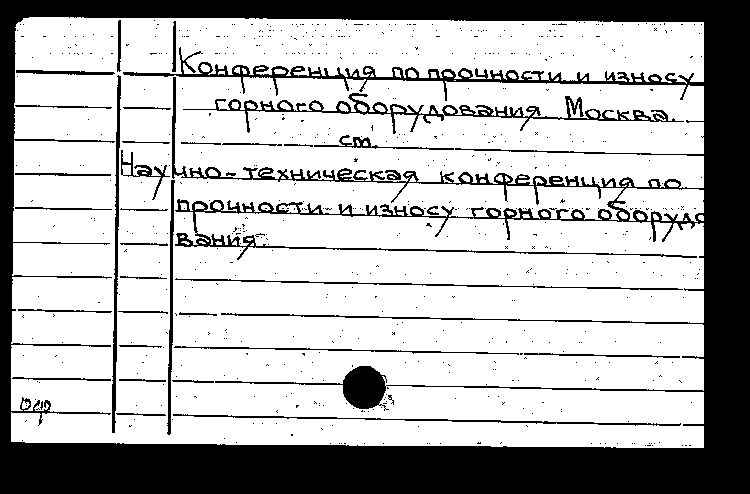 Конференция по прочности и износу
горного оборудования. Москва.
см.
Научно-техническая конференция по
прочности и износу горного оборудо
вания.